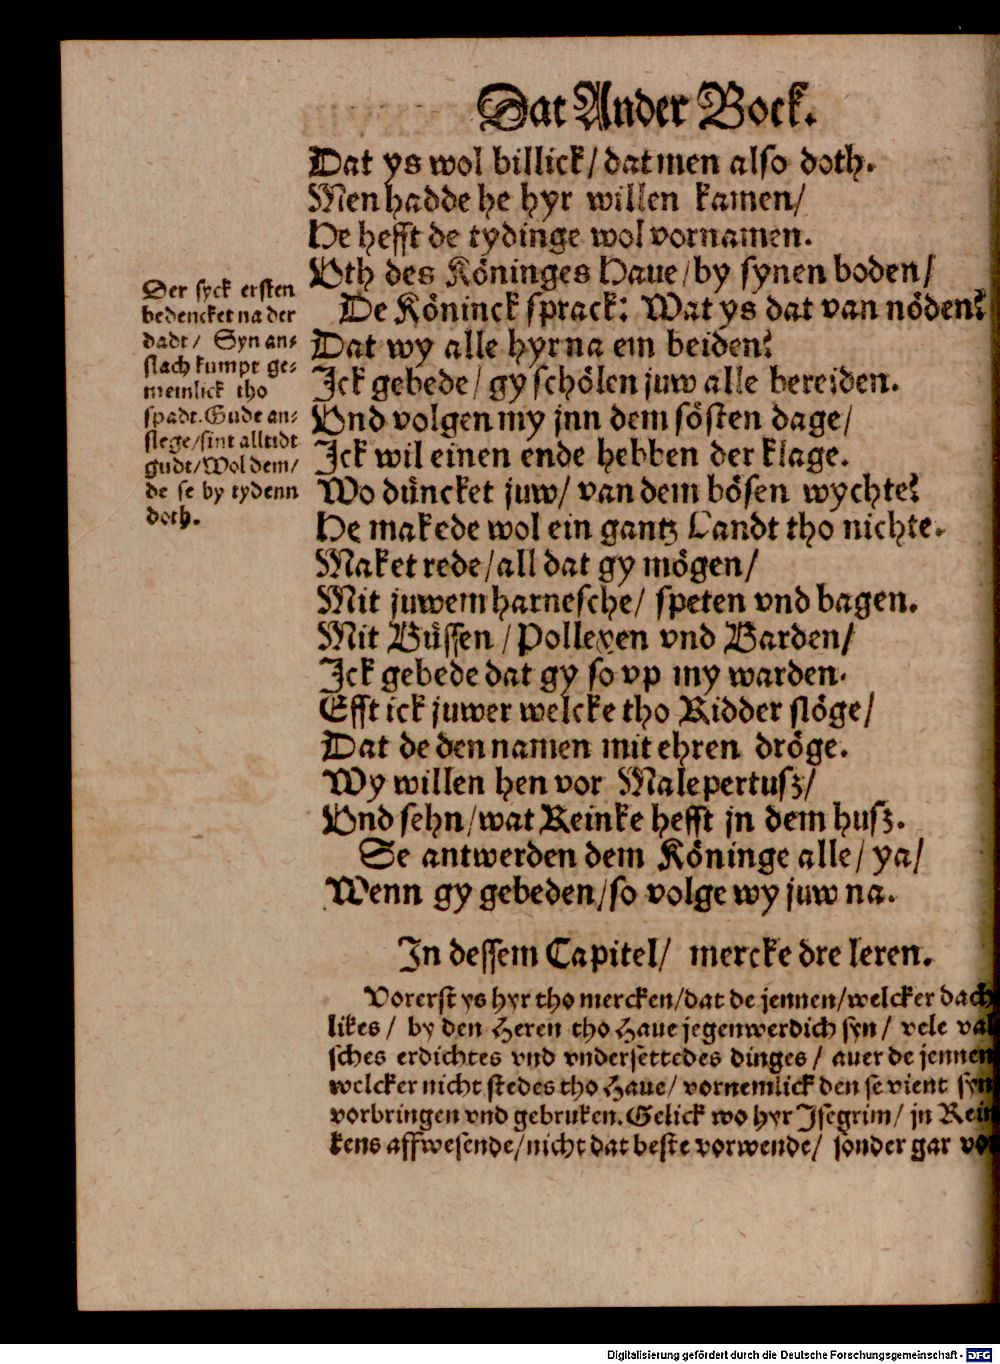 Dat Ander Boek.
Dat ys wol billick/ dat men also doth.
Men hadde he hyr willen kamen/
He hefft de tydinge wol vornamen.
Vth des Köninges Haue/ by synen boden/
De Köninck sprack: Wat ys dat van nöden?
Dat wy alle hyr na ein beiden?
Ick gebede/ gy schölen juw alle bereiden.
Vnd volgen my jnn dem sösten dage/
Ick wil einen ende hebben der klage.
Wo düncket juw/ van dem bösen wychte?
He makede wol ein gantz Landt tho nichte.
Maket rede/ all dat gy mögen/
Mit juwem harnesche/ speten vnd bagen.
Mit Büssen/ Pollexen vnd Barden/
Ick gebede dat gy so vp my warden.
Efft ick juwer welcke tho Ridder slöge/
Dat de den namen mit ehren dröge.
Wy willen hen vor Malepertusz/
Vnd sehn/ wat Reinke hefft jn dem husz.
Se antwerden dem Köninge alle/ ya/
Wenn gy gebeden/ so volge wy juw na.
Der syck ersten
bedencket na der
dadt/ Syn an-
slach kumpt ge-
meinlick tho
spadt. Gude an-
slege/ sint alltidt
gudt/ Wol dem/
de se by tydenn
doth.
In dessem Capitel/ mercke dre leren.
Vorerst ys hyr tho mercken/ dat de jennen/ welcker dach
likes/ by den Heren tho Haue jegenwerdich syn/ vele val
sches erdichtes vnd vndersettedes dinges/ auer de jennen
welcker nicht stedes tho Haue/ vornemlick den se vient syn
vorbringen vnd gebruken. Gelick wo hyr Isegrim/ jn Rein
kens affwesende/ nicht dat beste vorwende/ sonder gar vor
Digitalisierung gefördert durch die Deutsche Forschungsgemeinschaft - DFG